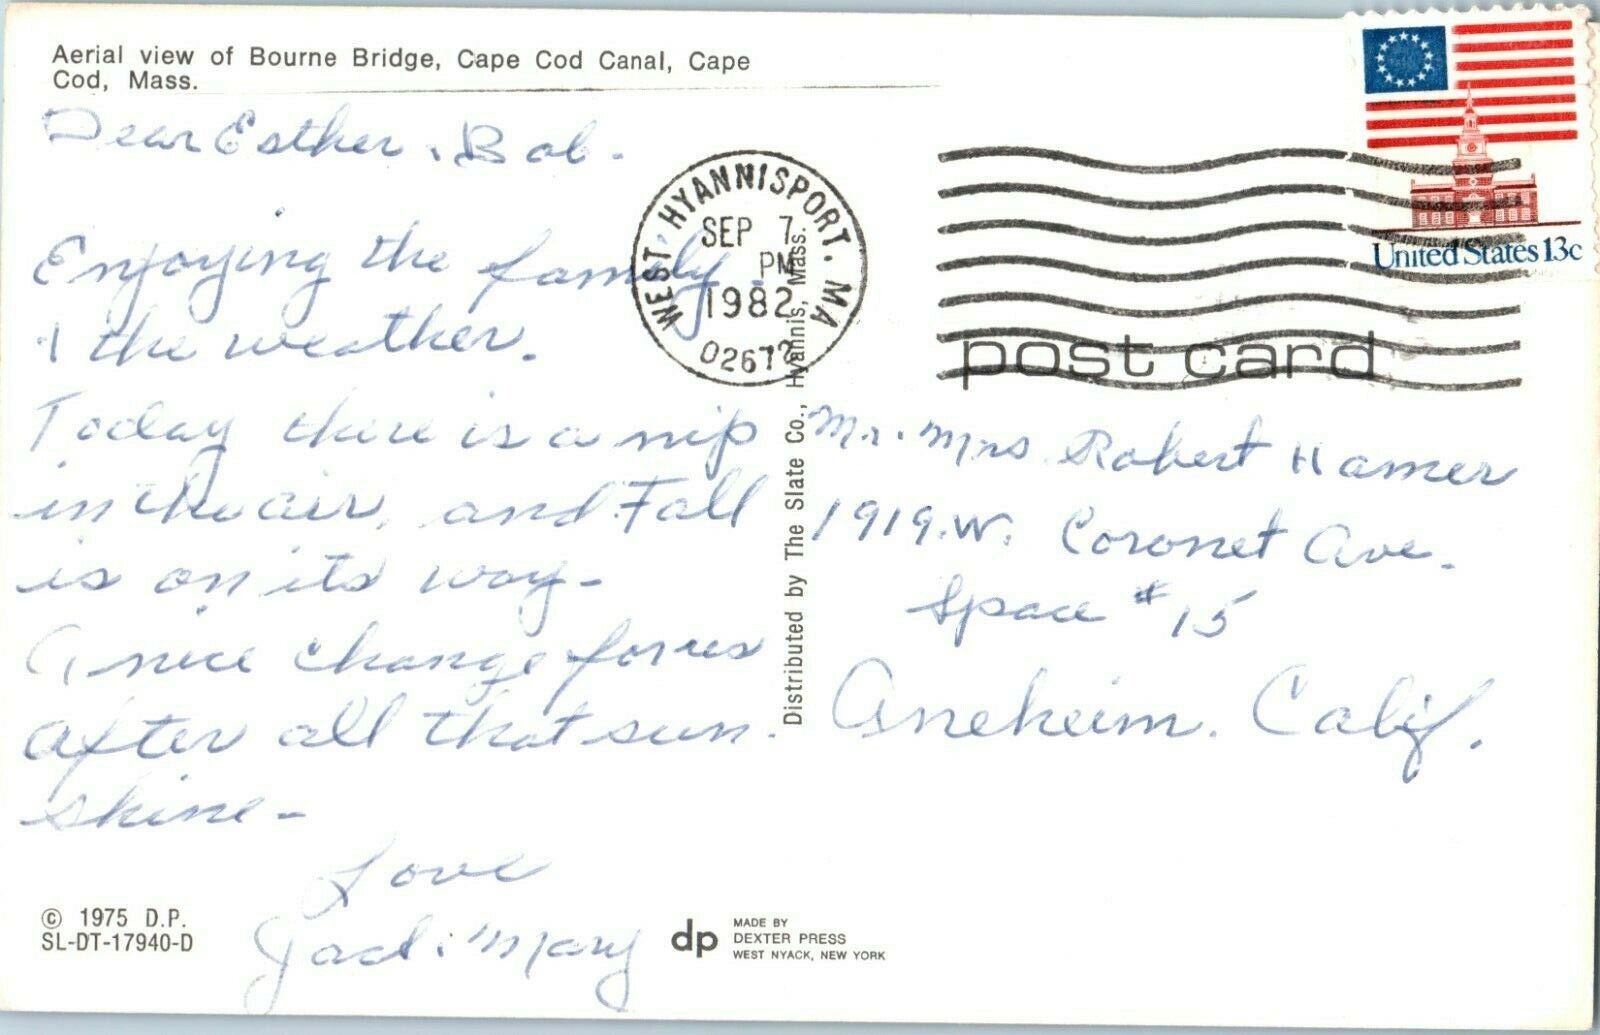 Aerial view of Bourne Bridge, Cape Cod Canal, Cape
Cod, Mass.
Dear Esther & Bob.
Enjoying the family
& the weather.
Today there is a nip
in the air, and Fall
is on its way-
A nice change for us
after all that sun.
shine-
Love
Jack & Mary
© 1975 D.P.
SL-DT-17940-D
dp
MADE BY
DEXTER PRESS
WEST NYACK, NEW YORK
Distributed by The Slate Co., Hyannis, Mass.
WEST HYANNISPORT. MA
SEP 7
PM
1982
02672
United States 13c
post card
Mr. Mrs Robert Hamer
1919. W. Coronet Ave.
Space #15
Aneheim. Calif.